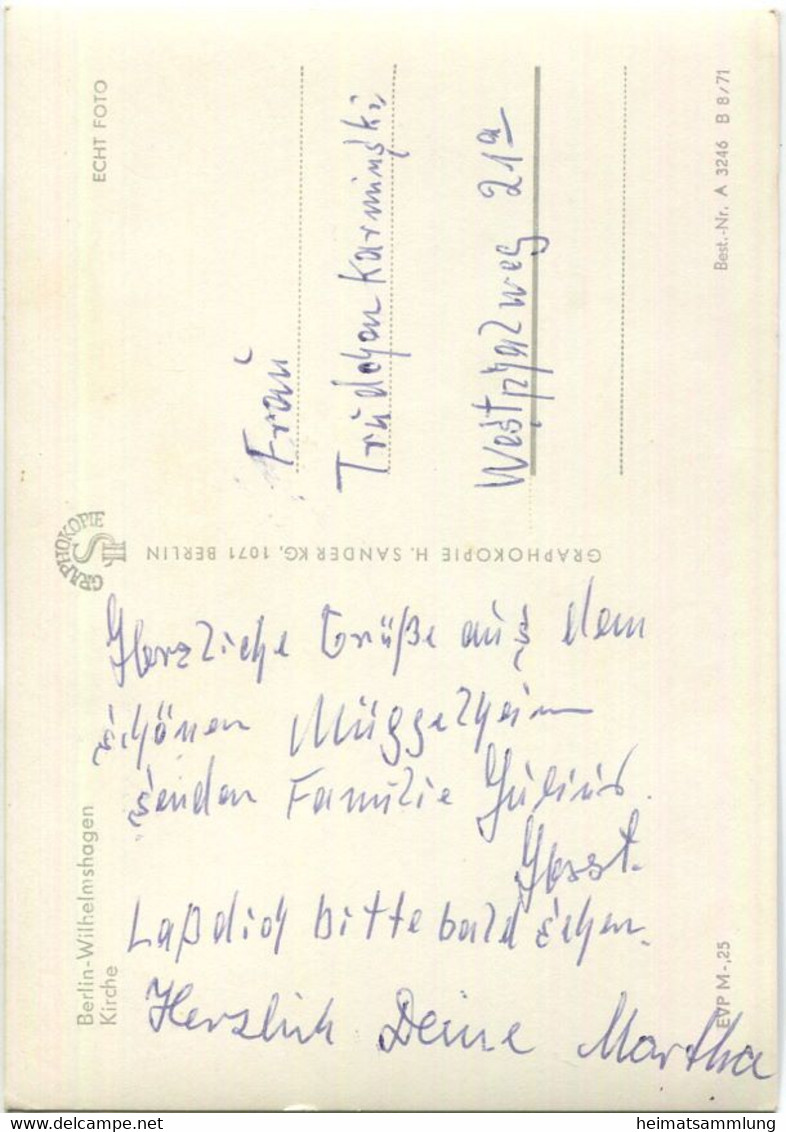 Berlin-Wilhelmshagen
Kirche
ECHT FOTO
GRAPHOKOPIE
GRAPHOKOPIE H. SANDER KG, 1071 BERLIN
Herzliche Grüße aus dem
schönen Müggelheim
senden Familie Julius
Laß dich bitte bald sehen.
Herzlich Deine Martha
Frau
Trudchen Karminski
Westphalweg 21a
EVP M -,25
Best.-Nr. A 3246 B 8/71
delcampe.net
heimatsammlung